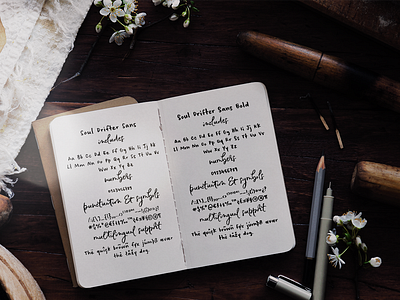 Soul Drifter Sans
includes
Aa Bb Cc Dd Ee Ff Gg Hh Ii Jj Kk
Ll Mm Nn Oo Pp Qq Rr Ss Tt Uu Vv
Ww Xx Yy Zz
numbers
punctuation & symbols
multilingual support
The quick brown fox jumps over
the lazy dog
Soul Drifter Sans Bold
includes
Aa Bb Cc Dd Ee Ff Gg Hh Ii Jj Kk
Ll Mm Nn Oo Pp Qq Rr Ss Tt Uu Vv
Ww Xx Yy Zz
numbers
punctuation & symbols
multilingual support
The quick brown fox jumps over
the lazy dog